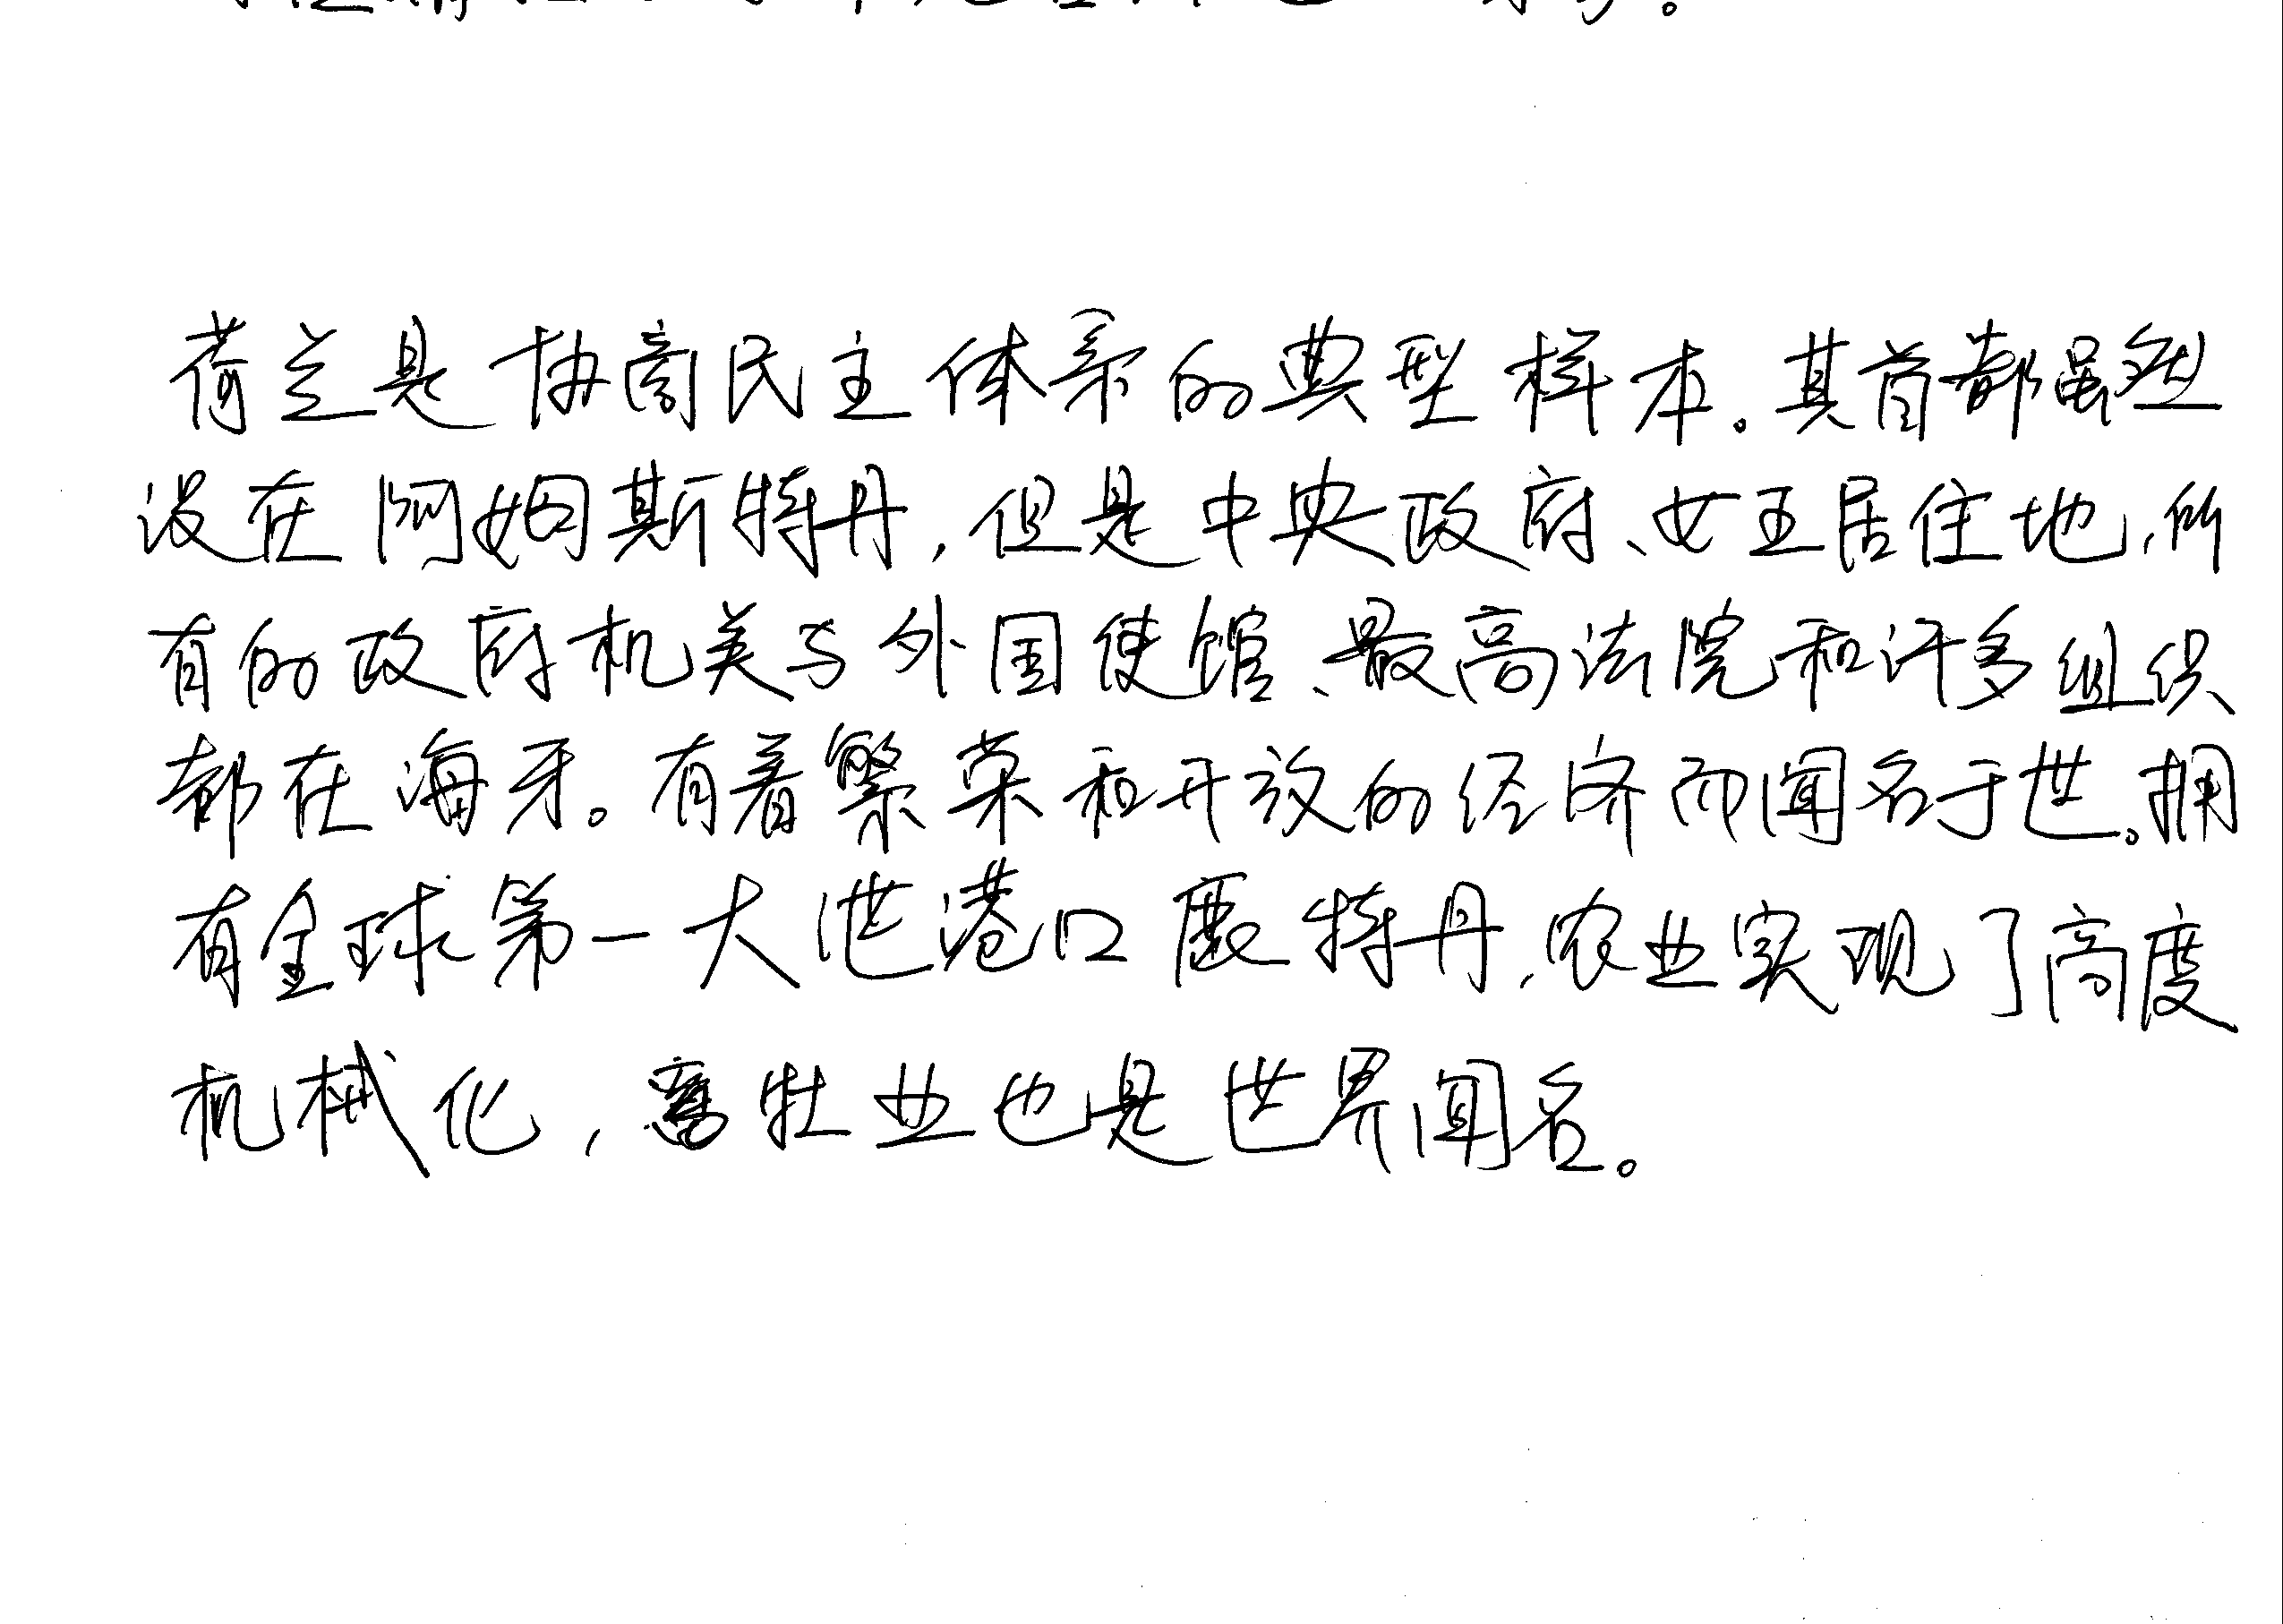 荷兰是协商民主体系的典型样本。其首都虽然
设在阿姆斯特丹,但是中央政府、女王居住地,所
有的政府机关与外国使馆、最高法院和许多组织
都在海牙。有着繁荣和开放的经济而闻名于世。拥
有全球第一大港口鹿特丹,农业实现了高度
机械化,畜牡业也是世界闻名。